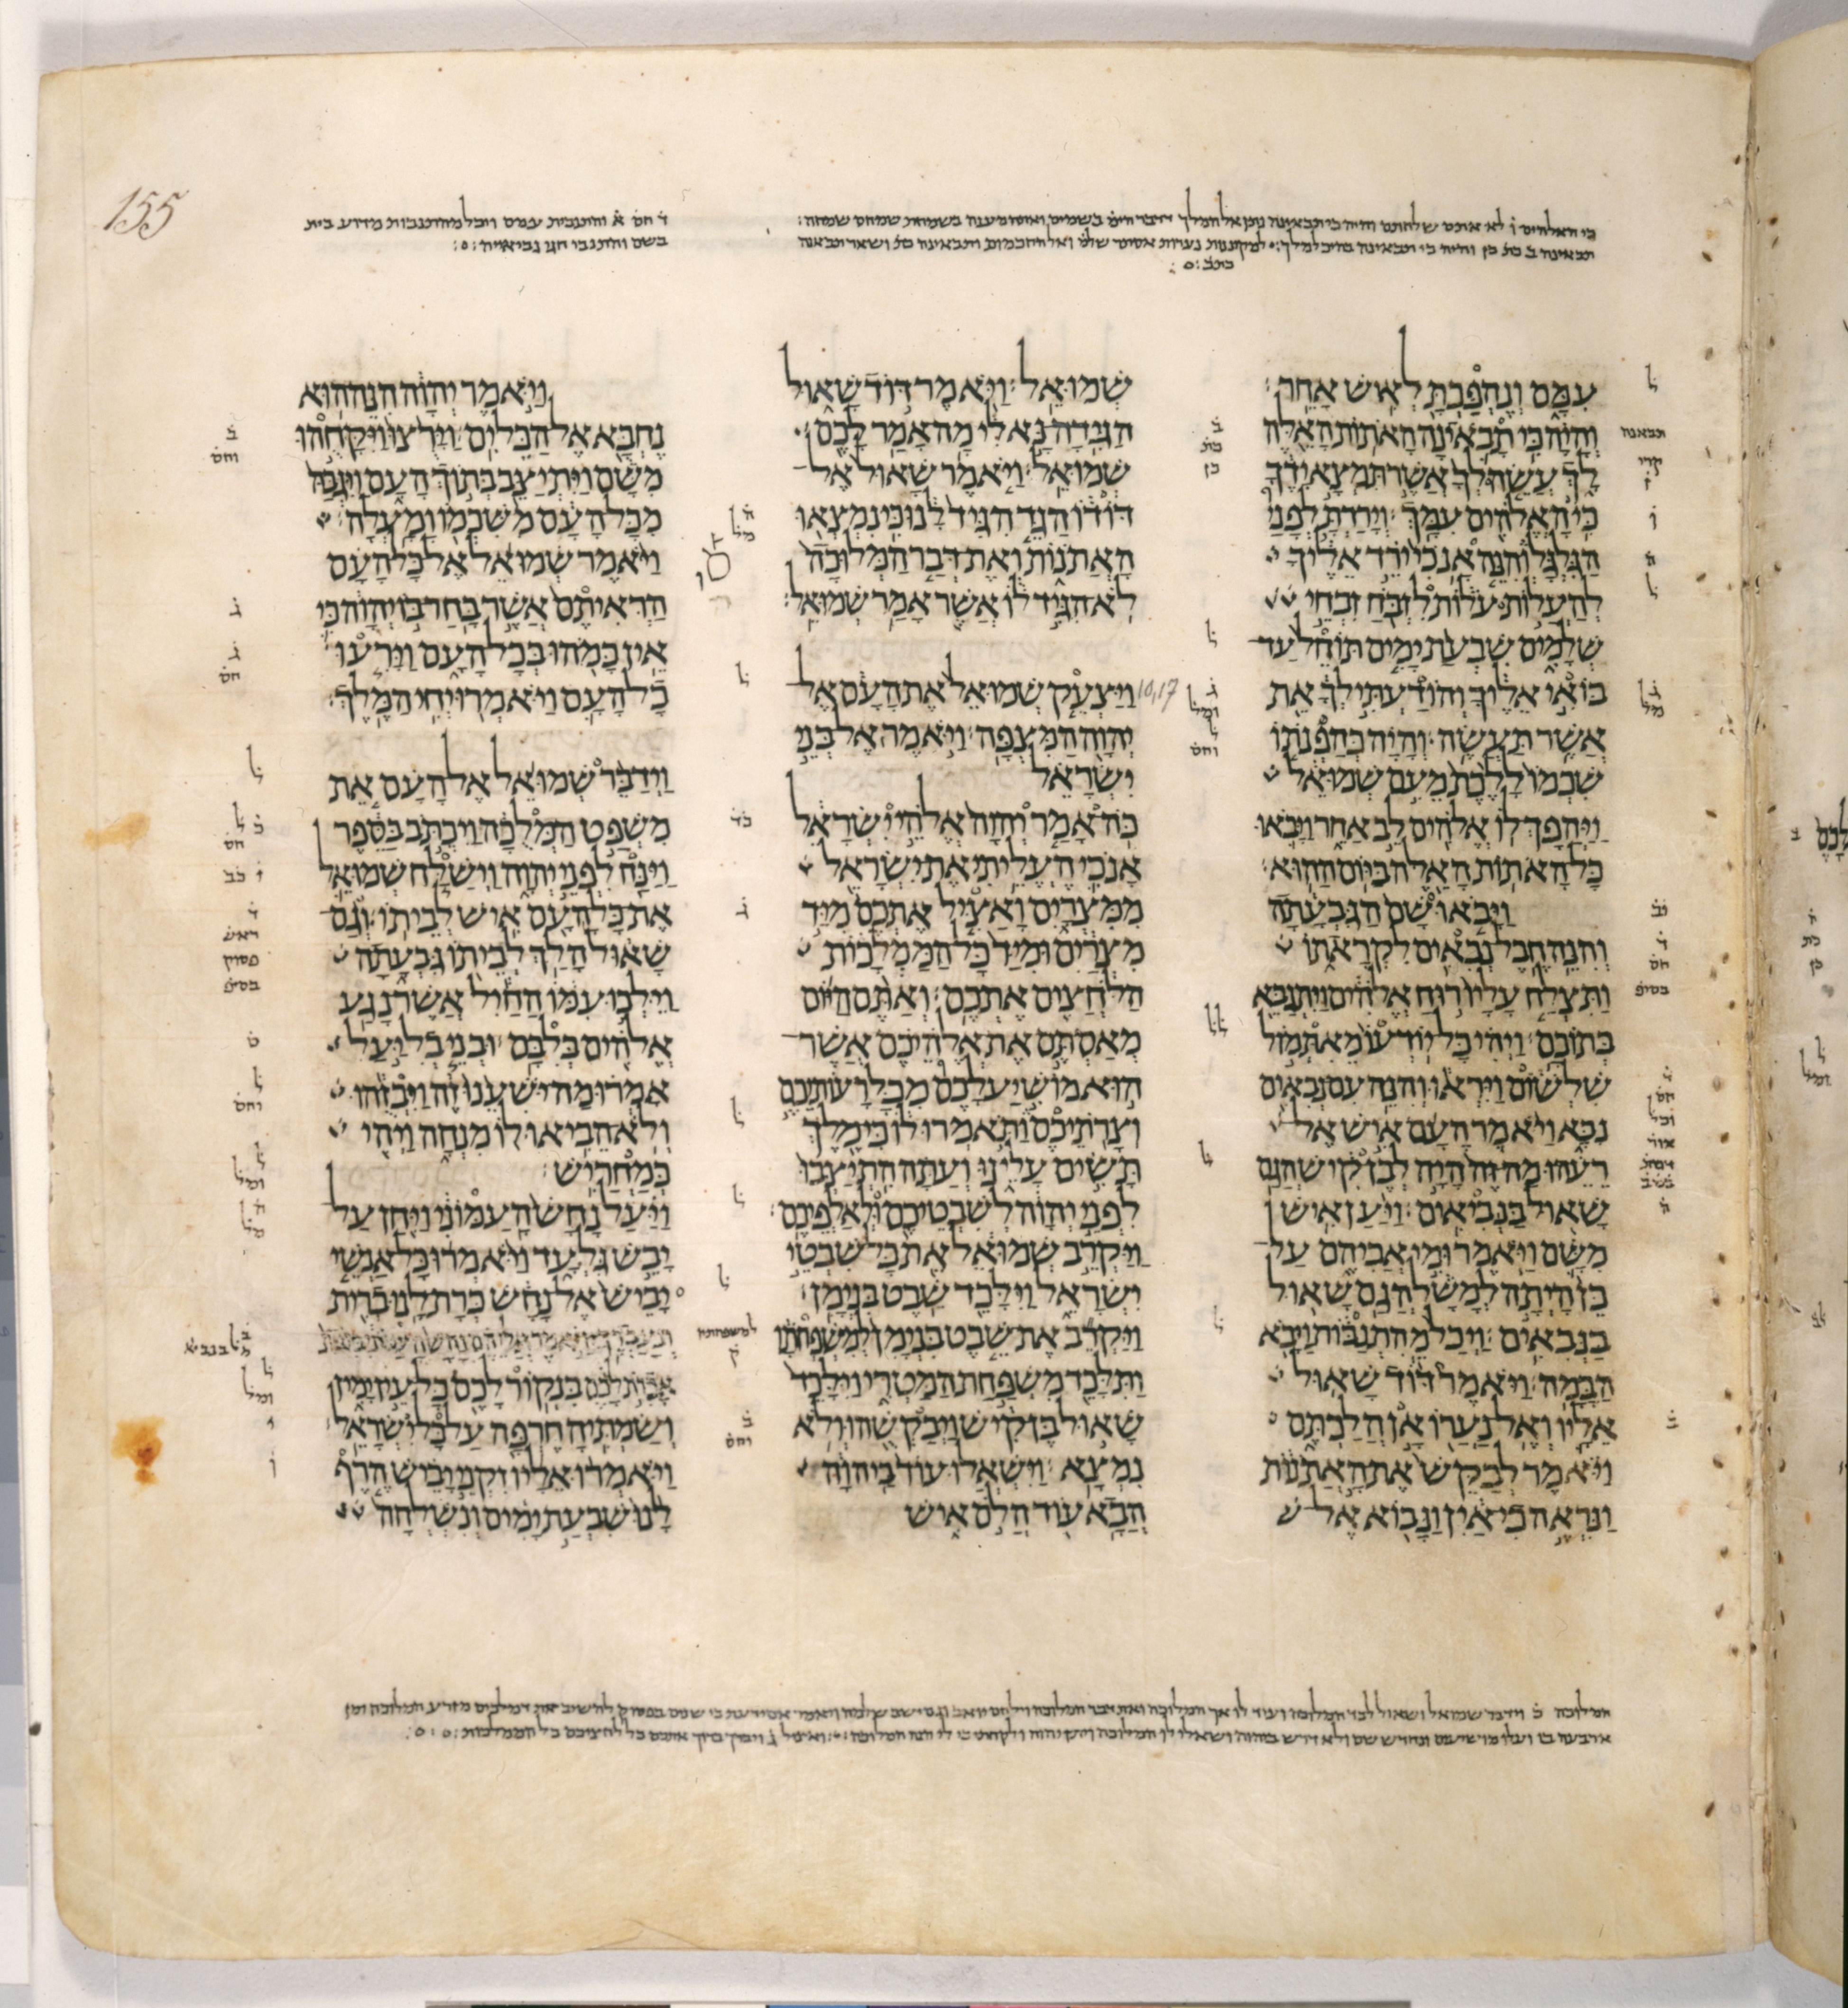 155
עִמָּם וְנֶהְפַּכְתָּ לְאִישׁ אַחֵר׃
וְהָיָה כִּי תָבֹאינָה הָאֹתוֹת הָאֵלֶּה
לָךְ עֲשֵׂה לְךָ אֲשֶׁר תִּמְצָא יָדֶךָ
כִּי הָאֱלֹהִים עִמָּךְ׃ וְיָרַדְתָּ לְפָנַי
הַגִּלְגָּל וְהִנֵּה אָנֹכִי יֹרֵד אֵלֶיךָ
לְהַעֲלוֹת עֹלוֹת לִזְבֹּחַ זִבְחֵי
שְׁלָמִים שִׁבְעַת יָמִים תּוֹחֵל עַד
בּוֹאִי אֵלֶיךָ וְהוֹדַעְתִּי לְךָ אֵת
אֲשֶׁר תַּעֲשֶׂה׃ וְהָיָה כְּהַפְנֹתוֹ
שִׁכְמוֹ לָלֶכֶת מֵעִם שְׁמוּאֵל
וַיַּהֲפָךְ לוֹ אֱלֹהִים לֵב אַחֵר וַיָּבֹאוּ
כָּל הָאֹתוֹת הָאֵלֶּה בַּיּוֹם הַהוּא׃
וַיָּבֹאוּ שָׁם הַגִּבְעָתָה
וְהִנֵּה חֶבֶל נְבִאִים לִקְרָאתוֹ
וַתִּצְלַח עָלָיו רוּחַ אֱלֹהִים וַיִּתְנַבֵּא
בְּתוֹכָם׃ וַיְהִי כָּל יוֹדְעוֹ מֵאִתְּמוֹל
שִׁלְשׁוֹם וַיִּרְאוּ וְהִנֵּה עִם נְבִאִים
נִבָּא וַיֹּאמֶר הָעָם אִישׁ אֶל
רֵעֵהוּ מַה זֶּה הָיָה לְבֶן קִישׁ הֲגַם
שָׁאוּל בַּנְּבִיאִים׃ וַיַּעַן אִישׁ
מִשָּׁם וַיֹּאמֶר וּמִי אֲבִיהֶם עַל
כֵּן הָיְתָה לְמָשָׁל הֲגַם שָׁאוּל
בַּנְּבִאִים׃ וַיְכַל מֵהִתְנַבּוֹת וַיָּבֹא
הַבָּמָה׃ וַיֹּאמֶר דּוֹד שָׁאוּל
אֵלָיו וְאֶל נַעֲרוֹ אָן הֲלַכְתֶּם
וַיֹּאמֶר לְבַקֵּשׁ אֶת הָאֲתֹנוֹת
וַנִּרְאֶה כִי אַיִן וַנָּבוֹא אֶל שׁ
שְׁמוּאֵל׃ וַיֹּאמֶר דּוֹד שָׁאוּל
הַגִּידָה נָּא לִי מָה אָמַר לָכֶם
שְׁמוּאֵל׃ וַיֹּאמֶר שָׁאוּל אֶל
דּוֹדוֹ הַגֵּד הִגִּיד לָנוּ כִּי נִמְצְאוּ
הָאֲתֹנוֹת וְאֶת דְּבַר הַמְּלוּכָה
לֹא הִגִּיד לוֹ אֲשֶׁר אָמַר שְׁמוּאֵל׃
10,17 וַיַּצְעֵק שְׁמוּאֵל אֶת הָעָם אֶל
יְהוָה הַמִּצְפָּה׃ וַיֹּאמֶר אֶל בְּנֵי
יִשְׂרָאֵל
כֹּה אָמַר יְהוָה אֱלֹהֵי יִשְׂרָאֵל
אָנֹכִי הֶעֱלֵיתִי אֶת יִשְׂרָאֵל
מִמִּצְרָיִם וָאַצִּיל אֶתְכֶם מִיַּד
מִצְרַיִם וּמִיַּד כָּל הַמַּמְלָכוֹת
הַלֹּחֲצִים אֶתְכֶם׃ וְאַתֶּם הַיּוֹם
מְאַסְתֶּם אֶת אֱלֹהֵיכֶם אֲשֶׁר
הוּא מוֹשִׁיעַ לָכֶם מִכָּל רָעוֹתֵיכֶם
וְצָרֹתֵיכֶם וַתֹּאמְרוּ לוֹ כִּי מֶלֶךְ
תָּשִׂים עָלֵינוּ וְעַתָּה הִתְיַצְּבוּ
לִפְנֵי יְהוָה לְשִׁבְטֵיכֶם וּלְאַלְפֵיכֶם׃
וַיַּקְרֵב שְׁמוּאֵל אֵת כָּל שִׁבְטֵי
יִשְׂרָאֵל וַיִּלָּכֵד שֵׁבֶט בִּנְיָמִן׃
וַיַּקְרֵב אֶת שֵׁבֶט בִּנְיָמִן לְמִשְׁפְּחֹתָו
וַתִּלָּכֵד מִשְׁפַּחַת הַמַּטְרִי וַיִּלָּכֵד
שָׁאוּל בֶּן קִישׁ וַיְבַקְשֻׁהוּ וְלֹא
נִמְצָא׃ וַיִּשְׁאֲלוּ עוֹד בַּיהוָה
הֲבָא עוֹד הֲלֹם אִישׁ
וַיֹּאמֶר יְהוָה הִנֵּה הוּא
נֶחְבָּא אֶל הַכֵּלִים׃ וַיָּרֻצוּ וַיִּקָּחֻהוּ
מִשָּׁם וַיִּתְיַצֵּב בְּתוֹךְ הָעָם וַיִּגְבַּהּ
מִכָּל הָעָם מִשִּׁכְמוֹ וָמָעְלָה׃
וַיֹּאמֶר שְׁמוּאֵל אֶל כָּל הָעָם
הַרְּאִיתֶם אֲשֶׁר בָּחַר בּוֹ יְהוָה כִּי
אֵין כָּמֹהוּ בְּכָל הָעָם וַיָּרִעוּ
כָל הָעָם וַיֹּאמְרוּ יְחִי הַמֶּלֶךְ׃
וַיְדַבֵּר שְׁמוּאֵל אֶל הָעָם אֵת
מִשְׁפַּט הַמְּלֻכָה וַיִּכְתֹּב בַּסֵּפֶר
וַיַּנַּח לִפְנֵי יְהוָה וַיְשַׁלַּח שְׁמוּאֵל
אֶת כָּל הָעָם אִישׁ לְבֵיתוֹ׃ וְגַם
שָׁאוּל הָלַךְ לְבֵיתוֹ גִּבְעָתָה
וַיֵּלְכוּ עִמּוֹ הַחַיִל אֲשֶׁר נָגַע
אֱלֹהִים בְּלִבָּם׃ וּבְנֵי בְלִיַּעַל
אָמְרוּ מַה יֹּשִׁעֵנוּ זֶה וַיִּבְזֻהוּ
וְלֹא הֵבִיאוּ לוֹ מִנְחָה וַיְהִי
כְּמַחֲרִישׁ׃
וַיַּעַל נָחָשׁ הָעַמּוֹנִי וַיִּחַן עַל
יָבֵשׁ גִּלְעָד וַיֹּאמְרוּ כָּל אַנְשֵׁי
יָבֵישׁ אֶל נָחָשׁ כְּרָת לָנוּ בְרִית
וְנַעַבְדֶךָּ׃ וַיֹּאמֶר אֲלֵיהֶם נָחָשׁ הָעַמּוֹנִי בְּזֹאת
אֶכְרֹת לָכֶם בִּנְקוֹר לָכֶם כָּל עֵין יָמִין
וְשַׂמְתִּיהָ חֶרְפָּה עַל כָּל יִשְׂרָאֵל׃
וַיֹּאמְרוּ אֵלָיו זִקְנֵי יָבֵישׁ הֶרֶף
לָנוּ שִׁבְעַת יָמִים וְנִשְׁלְחָה